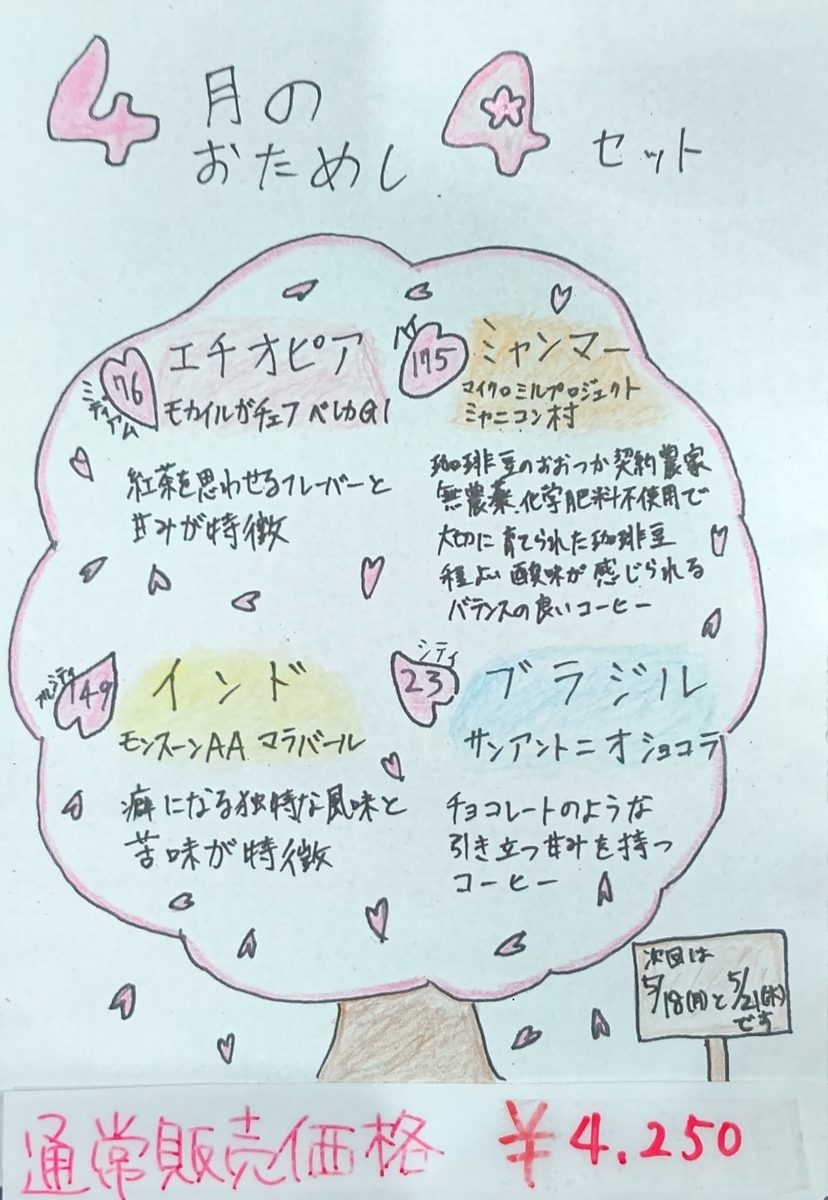 4月の
おためし4セット
76
ミディアム
エチオピア
モカイルガチェフ ベレカG1
紅茶を思わせるフレーバーと
甘みが特徴
175
ハイ
ミャンマー
マイクロミルプロジェクト
ミャニコン村
珈琲豆のおおつか契約農家
無農薬、化学肥料不使用で
大切に育てられた珈琲豆
程よい酸味が感じられる
バランスの良いコーヒー
149
フルシティ
インド
モンスーンAA マラバール
癖になる独特な風味と
苦味が特徴
23
シティ
ブラジル
サンアントニオショコラ
チョコレートのような
引き立つ甘みを持つ
コーヒー
次回は
5/18(月)と5/21(木)
です
通常販売価格 ¥4.250